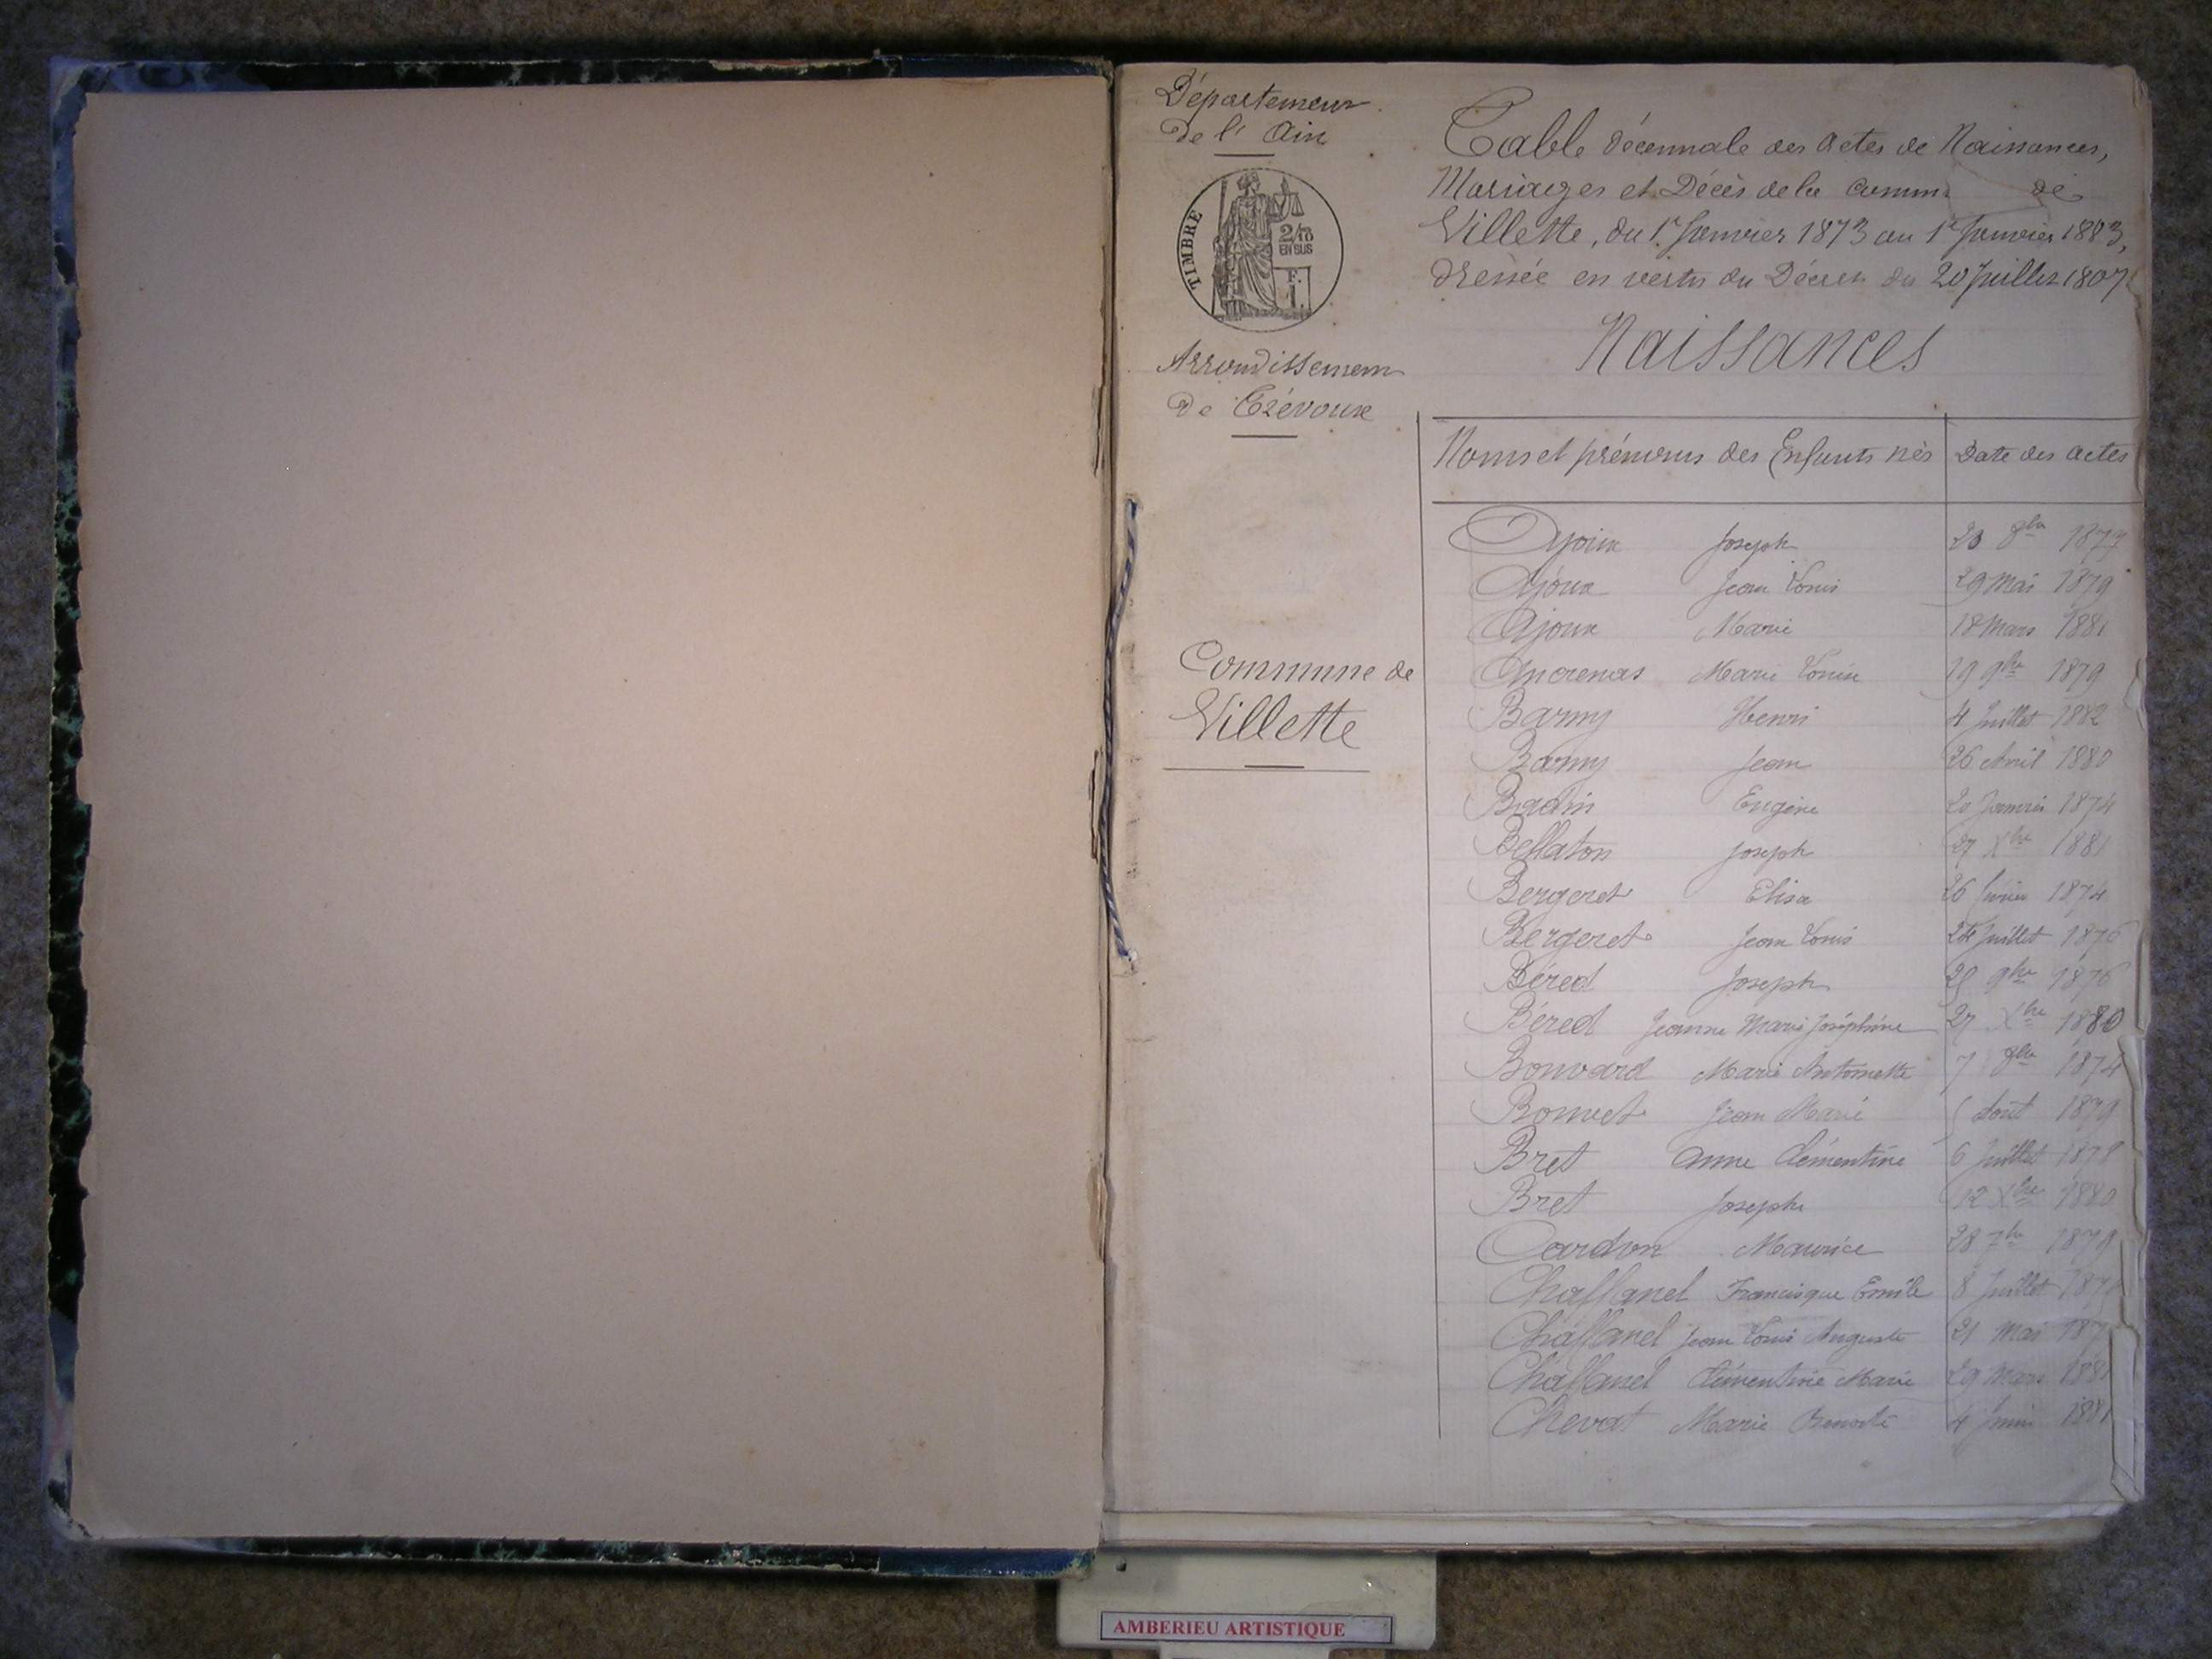 Département
de l' Ain
TIMBRE
2/10
EN SUS
F.
1.
Arrondissement
de Trévoux
Commune de
Villette
Table décennale des actes de Naissances,
Mariages et Décès de la Commune de
Villette, du 1er Janvier 1873 au 1er Janvier 1883,
dressée en vertu du Décret du 20 Juillet 1807
Naissances
Noms et prénoms des Enfants nés Date des actes
Ajoux Joseph 20 8bre 1877
Ajoux Jean Louis 29 Mai 1879
Ajoux Marie 18 Mars 1881
Ancrenas Marie Louise 19 9bre 1879
Barny Henri 4 Juillet 1882
Barny Jean 26 Avril 1880
Badin Eugène 20 Janvier 1874
Bellaton Joseph 27 Xbre 1881
Bergeret Elisa 26 février 1874
Bergeret Jean Louis 24 Juillet 1876
Béred Joseph 9bre 1876
Béred Jeanne Marie Joséphine 27 Xbre 1880
Bouvard Marie Antoinette 7 8bre 1874
Bouvet Jean Marie Août 1879
Bret Anne Clémentine 6 Juillet 1878
Bret Joseph 12 Xbre 1880
Cardon Maurice 28 7bre 1879
Chaffanel Francisque Emile 8 Juillet
Chaffanel Jean Louis Auguste 21 Mai
Chaffanel Clémentine Marie 29 Mars 1881
Chevat Marie Benoite 4 1881
AMBERIEU ARTISTIQUE